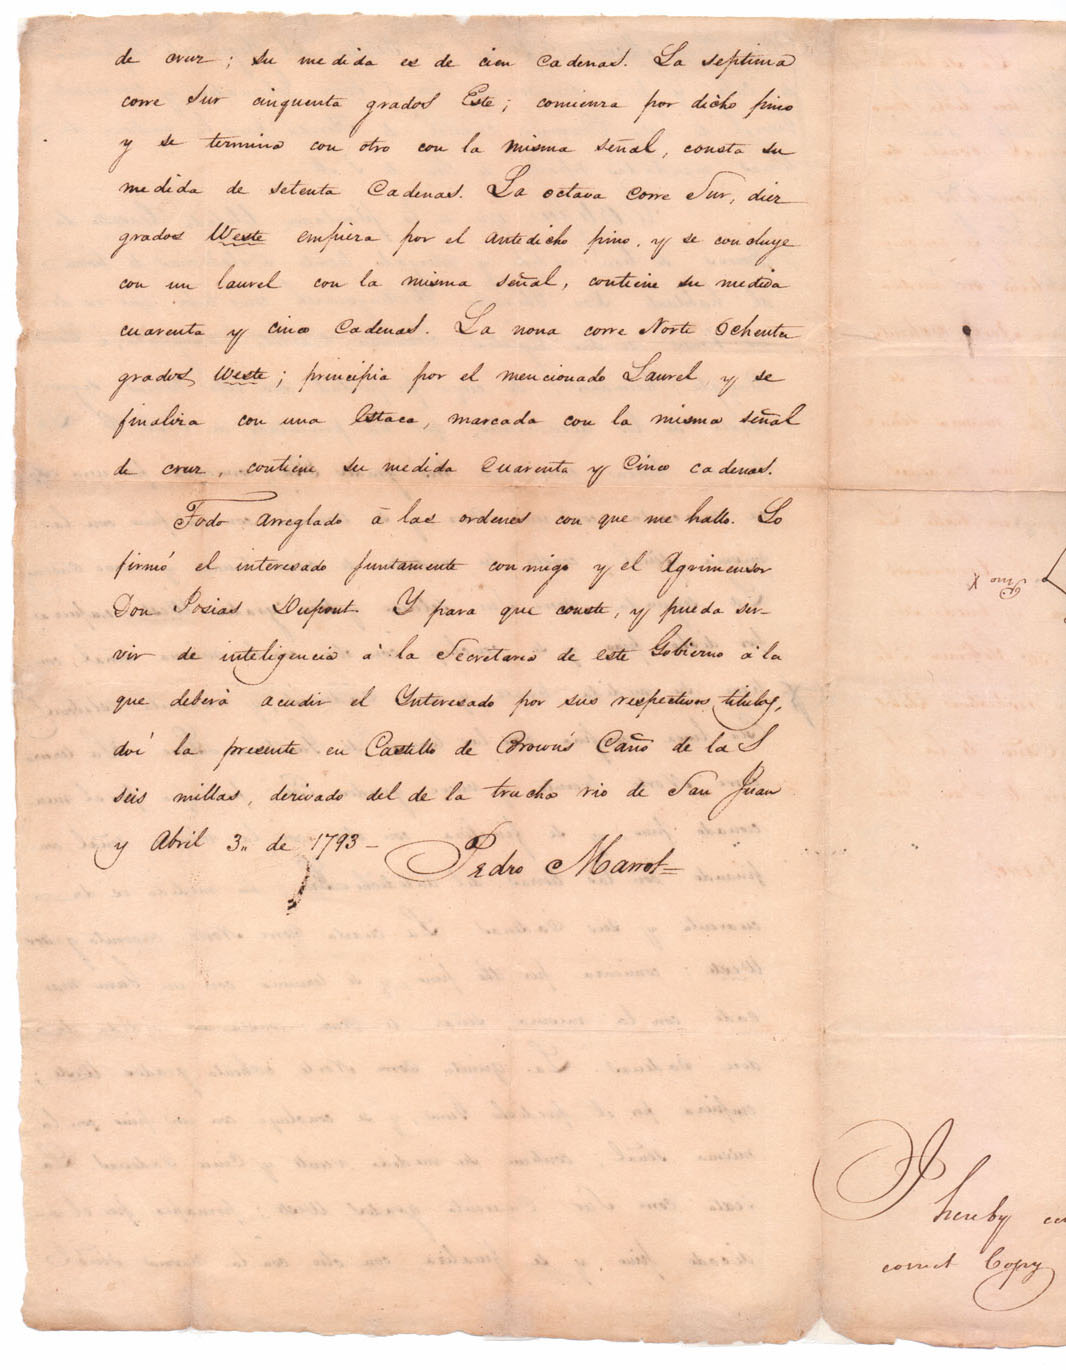 de cruz; su medida es de cien Cadenas. La septima
corre Sur cinquenta grados Este; comienza por dicho pino
y se termina con otro con la misma señal, consta su
medida de setenta Cadenas. La octava corre Sur, diez
grados Weste empieza por el antedicho pino, y se concluye
con un laurel con la misma señal, contiene su medida
cuarenta y cinco Cadenas. La nona corre Norte Ochenta
grados Weste; principia por el mencionado Laurel y se
finaliza con una Estaca, marcada con la misma señal
de cruz, contiene su medida Cuarenta y Cinco cadenas.
Todo arreglado à las ordenes con que me hallo. Lo
firmó el interesado juntamente conmigo y el Agrimensor
Don Josias Dupont Y para que conste, y pueda ser-
vir de inteligencia à la Secretaria de este Gobierno à la
que deberà acudir el Interesado por sus respectivos titulos,
doi la presente en Castillo de Brown's Caño de las
seis millas, derivado del de la trucha rio de San Juan
y Abril 3,, de 1793 —
Pedro Marrot
Pino X
I hereby
correct Copy